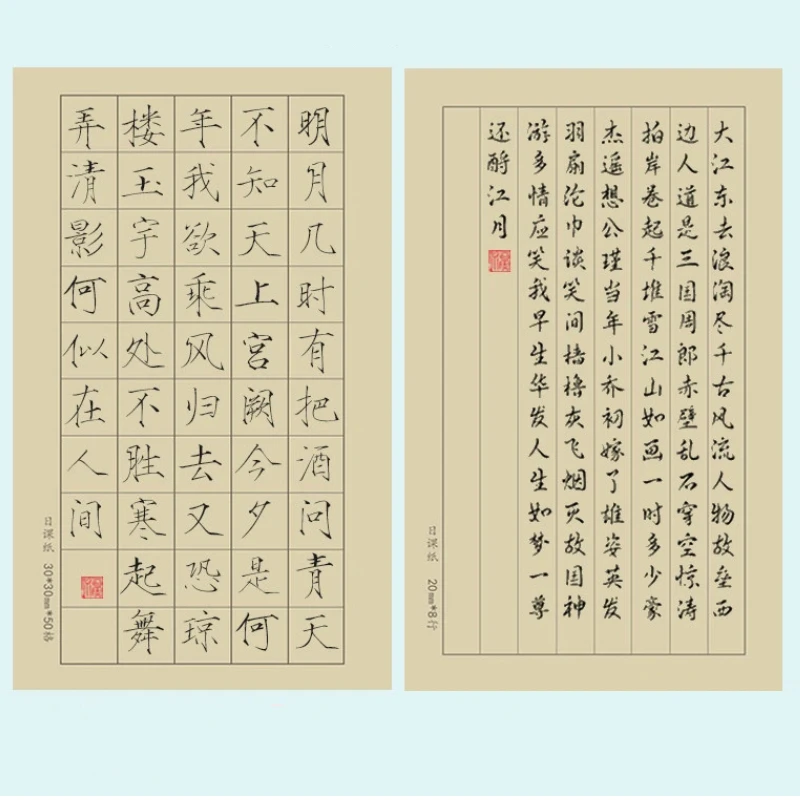 明月几时有把酒问青天
不知天上宫阙今夕是何
年我欲乘风归去又恐琼
楼玉宇高处不胜寒起舞
弄清影何似在人间
日课纸 30*30mm*50格
大江东去浪淘尽千古风流人物故垒西
边人道是三国周郎赤壁乱石穿空惊涛
拍岸卷起千堆雪江山如画一时多少豪
杰遥想公瑾当年小乔初嫁了雄姿英发
羽扇纶巾谈笑间樯橹灰飞烟灭故国神
游多情应笑我早生华发人生如梦一尊
还酹江月
日课纸 20mm*8行